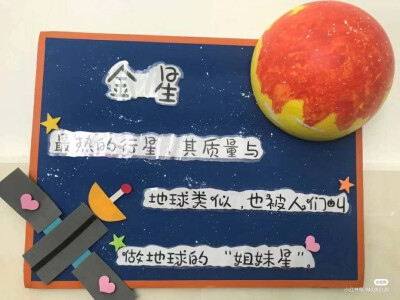 金星
最热的行星，其质量与
地球类似，也被人们叫
做地球的“姐妹星”。